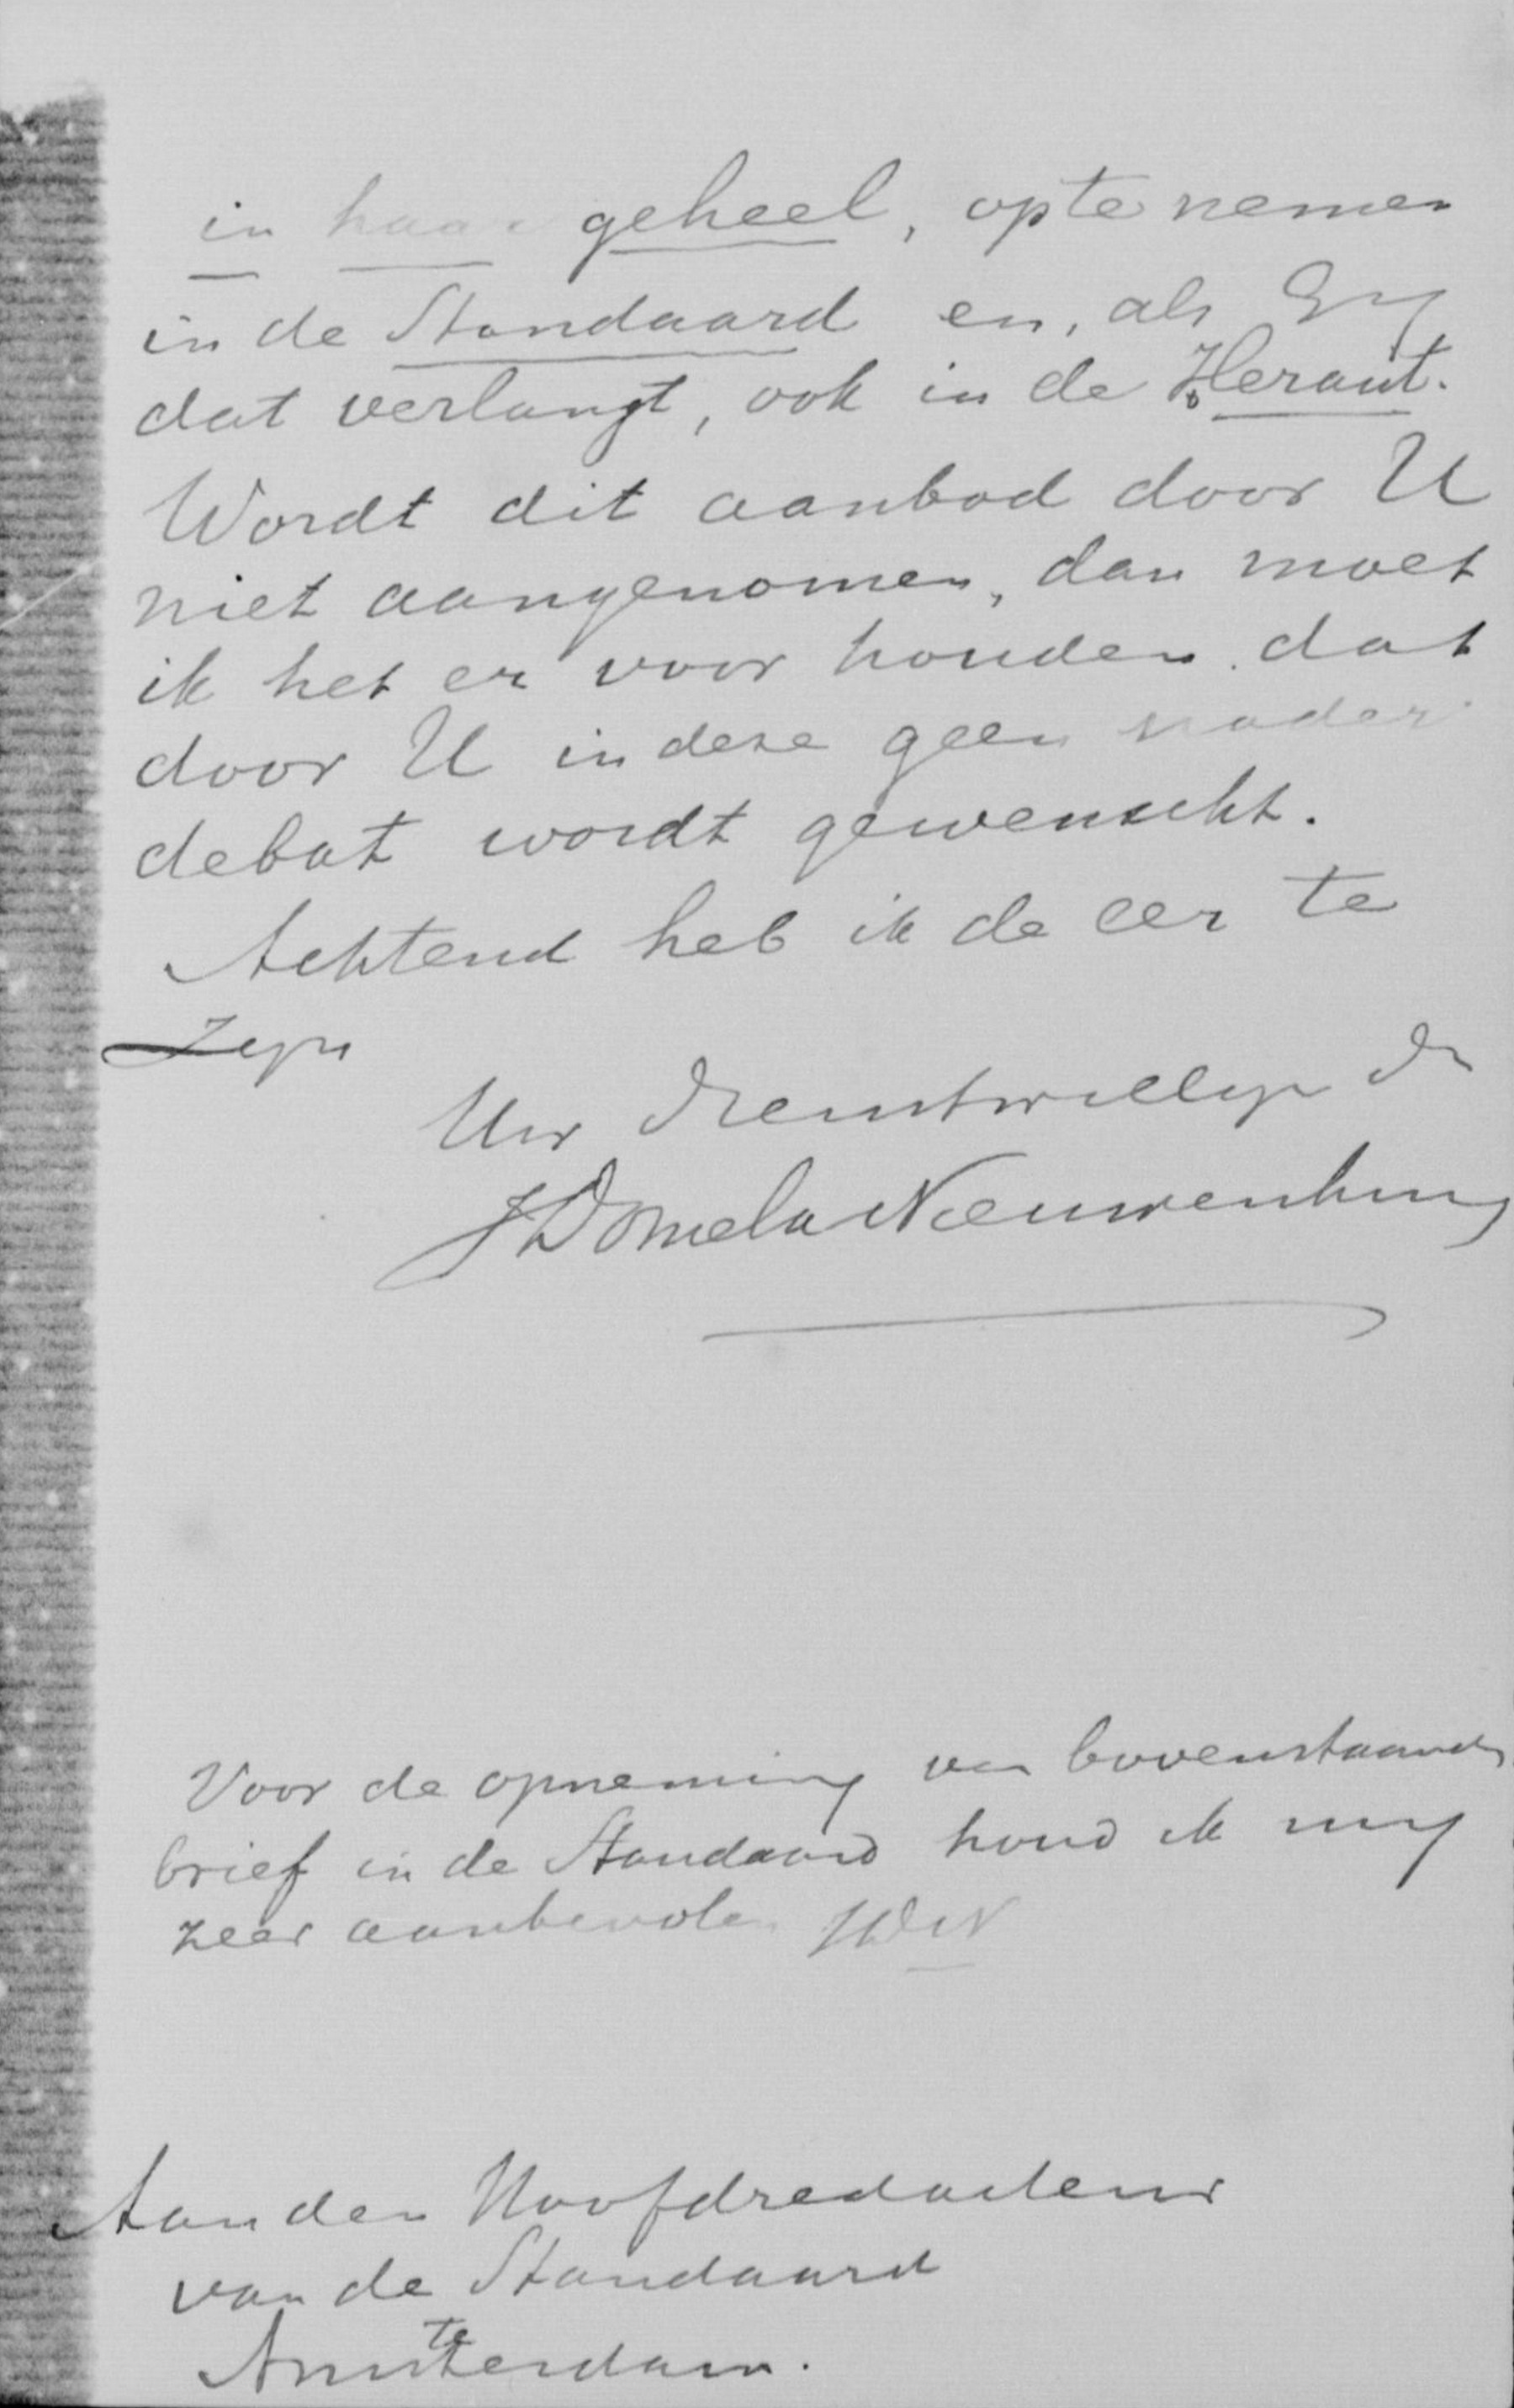 in haar geheel, op te nemen
in de Standaard en, als Gij
dat verlangt, ook in de Heraut.
Wordt dit aanbod door U
niet aangenomen, dan moet
ik het er voor houden dat
door U in deze geen nader
debat wordt gewenscht.
Achtend heb ik de eer te
zijn
Uw dienstwillige dr
J Domela Nieuwenhuis
Voor de opneming van bovenstaande
brief in de Standaard houd ik mij
zeer aanbevolen JDN
Aan den Hoofdredacteur
van de Standaard
te
Amsterdam.